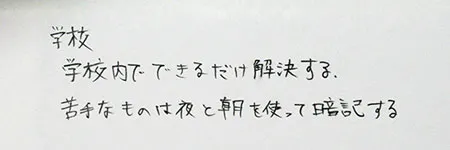 学校
学校内でできるだけ解決する.
苦手なものは夜と朝を使って暗記する